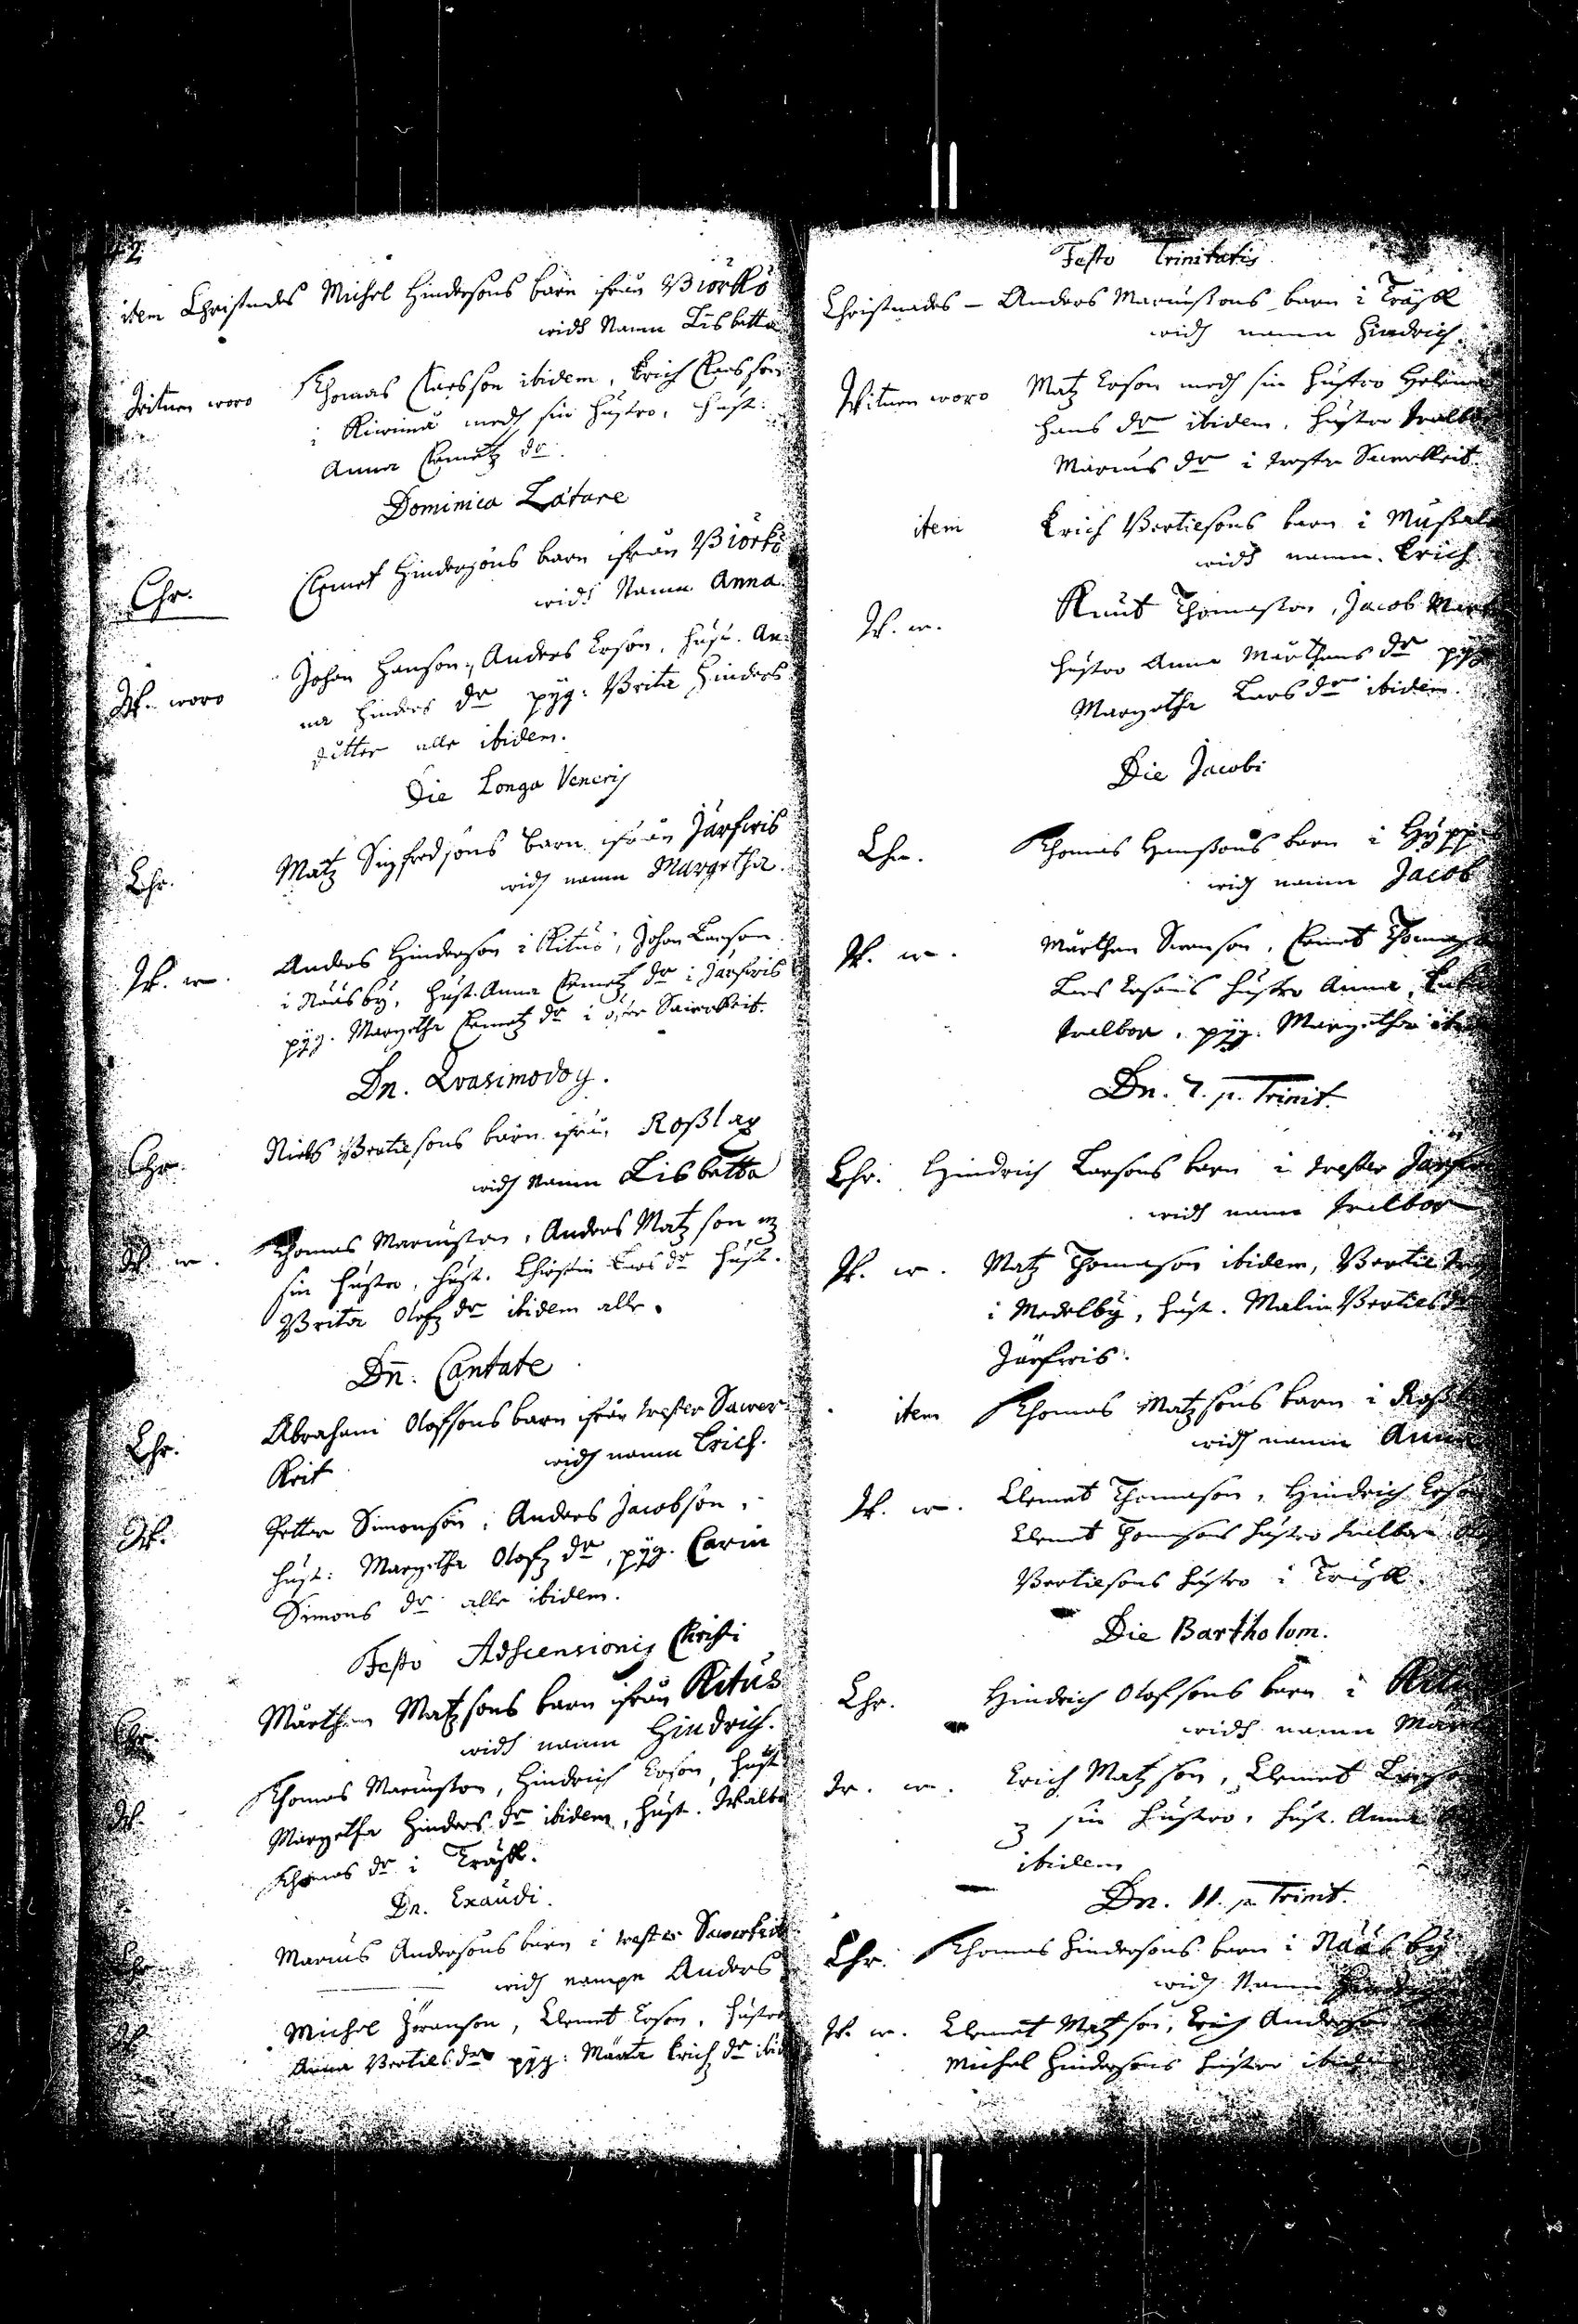 42
item Christnades Michel Hindersons barn ifrån Biörkö
widh Namn Lisbetta
Witnen woro Thomas Claesson ibidem, Erich Claesson
i Kiwimä medh sin hustro, hust:
Anna Clemetz dr.
Dominica Lætare
Chr. Clemet Hindersons barn ifrån Biörkö
widh Namn Anna.
W. woro Johan Hanson, Anders Erson, hust. An-
na Hinders dr pyg: Brita Hinders
dåtter alle ibidem.
Die Longa Veneris
Chr. Matz Sigfredsons barn ifrån Järfwis
widh namn Margetha.
W. w. Anders Hinderson i Kitus, Johan Larson
i Nääsby, hust. Anna Clemetz dr i Järfwis
pyg. Margetha Clemetz dr i öster Sawerkeit.
Dn. Qvasimodog.
Chr. Niels Bertilsons barn ifrån Roßlax
widh Namn Lisbetta
W. w. Thomas Mariußon, Anders Matzson m3
sin hustro, hust. Christin Lars dr hust.
Brita Olofz dr ibidem alle.
Dn. Cantate
Chr. Abraham Olofsons barn ifrån wester Sawer-
keit widh namn Erich.
W. Petter Simonson, Anders Jacobson,
hust: Margetha Olofz dr, pyg. Carin
Simons dr alle ibidem.
Festo Adscensionis Christi
Chr. Mårthen Matzsons barn ifrån Kitus
widh namn Hindrich.
W. Thomas Mariußon, Hindrich Erson, hust
Margetha Hinders dr ibidem, hust. Walbor
Thomas dr i Träsk.
Dn. Exaudi.
Chr. Marius Andersons barn i wester Sawerkeit
widh nampn Anders
W. Michel Jöranson, Clemet Erson, hustro
Anna Bertils dr pyg: Märta Erichz dr ibid
Festo Trinitatis
Christnades - Anders Mariußons barn i Träsk
widh namn Hindrich.
Witnen woro Matz Erson medh sin hustro Helena
Hans dr ibidem, hustro Walbor
Marius dr i wester Sawerkeit.
item Erich Bertilsons barn i Mußalo
widh namn Erich
W. w. Knut Thomasson, Jacob
hustro Anna Mårthens dr pyg
Margetha Lars dr ibidem.
Die Jacobi
Chr. Thomas Hanßons barn i Hyppeis
widh namn Jacob
W. w. Mårthen Swenson, Clemet Thomasson
Lars Ersons hustro Anna,
Walbor, pyg. Margetha
Dn. 7. p. Trinit.
Chr. Hindrich Larsons barn i wester Järfwis
widh namn Walbor
W. w. Matz Thomason ibidem, Bertil
i Medelby, hust. Malin Bertils dr
Järfwis.
item Thomas Matzsons barn i Roßlax
widh namn Anna
W. w. Clemet Thomason, Hindrich Erson
Clemet Thomsons hustro Walbor
Bertilsons hustro i Träsk.
Die Bartholom.
Chr. Hindrich Olofsons barn i Kitus
widh namn
W. w. Erich Matzson, Clemet Larson
m3 sin hustro, hust. Anna
ibidem
Dn. 11. p. Trinit.
Chr. Thomas Hindersons barn i Nääsby
widh Namn
W. w. Clemet Matzson, Erich Anderson
Michel Hindersons hustro ibidem